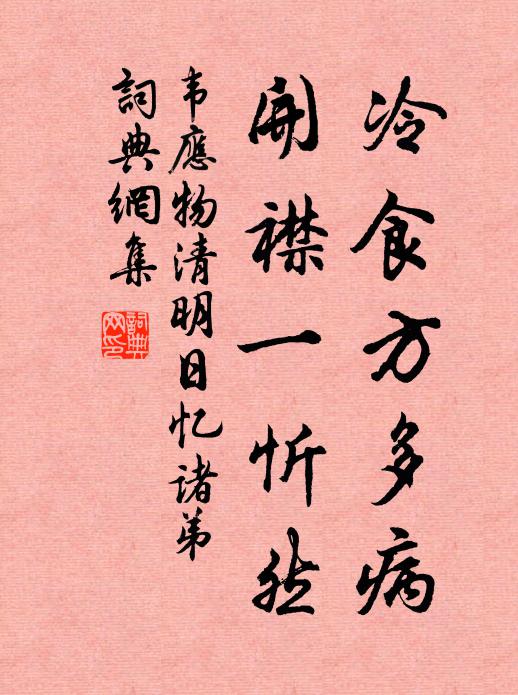 冷食方多病
開襟一忻然
韦應物清明日忆諸弟
詞典網集
詞典
网印